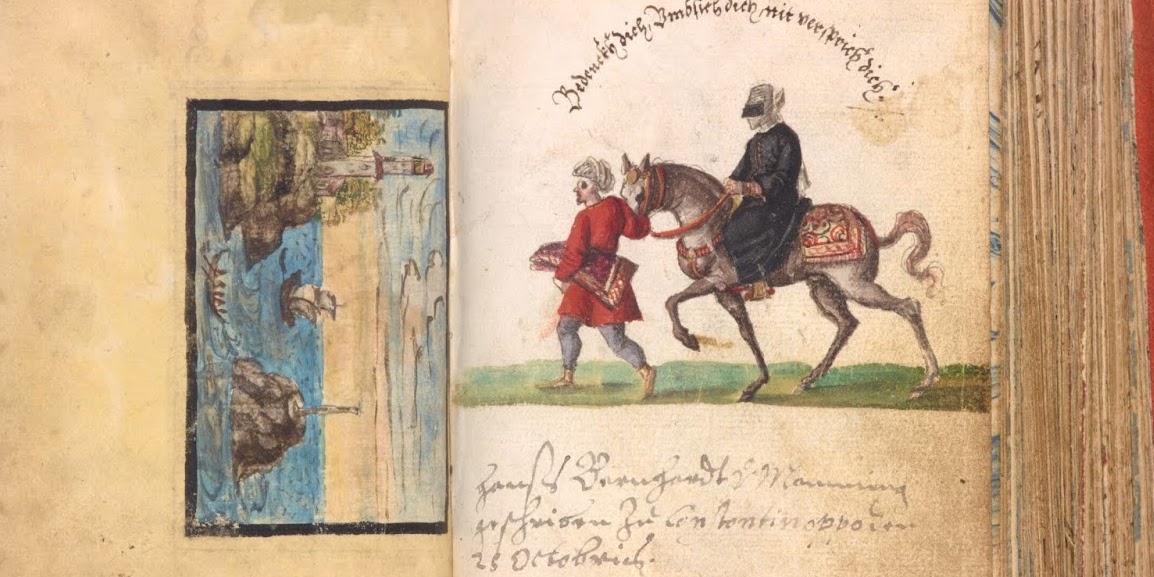 Bedenckh dich, Vmbsich dich nit versprich dich.
hanſs Bernhardt
geschriben zu Constantinoppolen
25 Octobris.